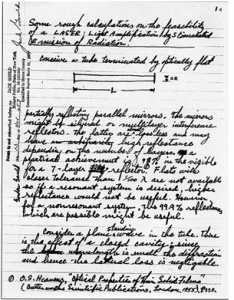 Some rough calculations on the feasibility
of a LASER: Light Amplification by Stimulated
Emission of Radiation.
conceive a tube terminated by optically flat
L
partially reflecting parallel mirrors. The mirrors
might be silvered or multilayer interference
reflectors. The latter are lossless and may
have high reflectance
depending on the number of layers. A
practical achievement is 98% in the visible
for a 7-layer reflector. Flats with
closer tolerance than 1/100 λ are not available
so if a resonant system is desired, higher
reflectance would not be useful. However
for a nonresonant system, the 99.9% reflectors
which are possible might be useful.
Consider a plane standing wave in the tube. There is
the effect of a closed cavity; since
the wavelength is small the diffraction
and hence the lateral loss is negligible.
O.S. Heavens, "Optical Properties of Thin Solid Films"
(Butterworths Scientific Publications, London, 1955)